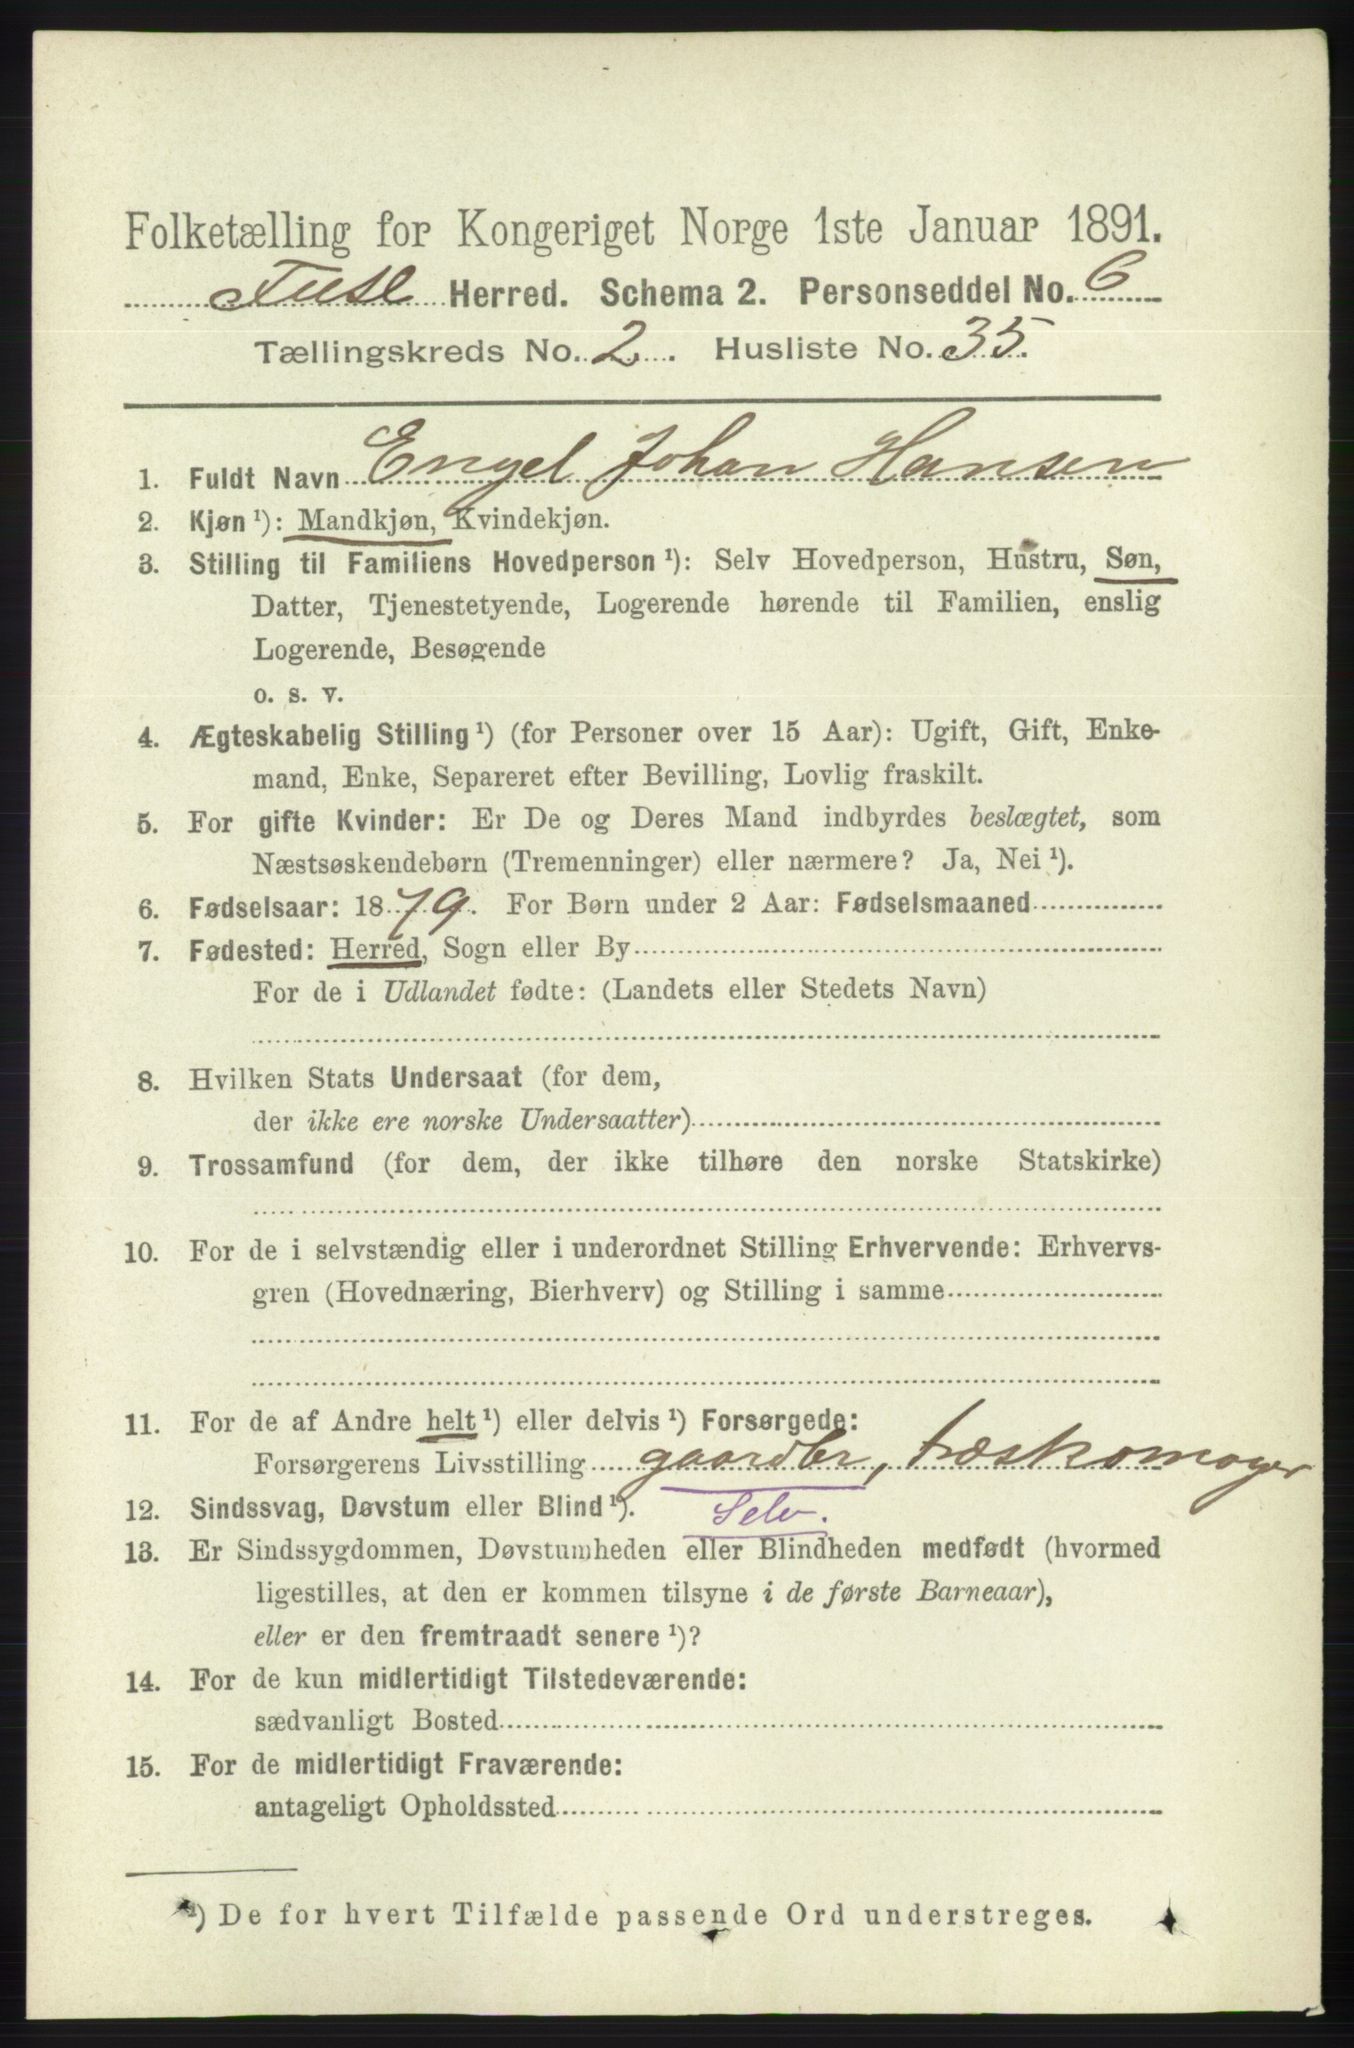 Folketælling for Kongeriget Norge 1ste Januar 1891.
Fuse Herred. Schema 2. Personseddel No. 6
Tællingskreds No. 2. Husliste No. 35.
1. Fuldt Navn Engel Johan Hansen
2. Kjøn ¹): Mandkjøn, Kvindekjøn.
3. Stilling til Familiens Hovedperson ¹): Selv Hovedperson, Hustru, Søn,
Datter, Tjenestetyende, Logerende hørende til Familien, enslig
Logerende, Besøgende
o. s. v.
4. Ægteskabelig Stilling ¹) (for Personer over 15 Aar): Ugift, Gift, Enke-
mand, Enke, Separeret efter Bevilling, Lovlig fraskilt.
5. For gifte Kvinder: Er De og Deres Mand indbyrdes beslægtet, som
Næstsøskendebørn (Tremenninger) eller nærmere? Ja, Nei ¹).
6. Fødselsaar: 1879. For Børn under 2 Aar: Fødselsmaaned
7. Fødested: Herred, Sogn eller By
For de i Udlandet fødte: (Landets eller Stedets Navn)
8. Hvilken Stats Undersaat (for dem,
der ikke ere norske Undersaatter)
9. Trossamfund (for dem, der ikke tilhøre den norske Statskirke)
10. For de i selvstændig eller i underordnet Stilling Erhvervende: Erhvervs-
gren (Hovednæring, Bierhverv) og Stilling i samme
11. For de af Andre helt ¹) eller delvis ¹) Forsørgede:
Forsørgerens Livsstilling gaardbr, træskomager
12. Sindssvag, Døvstum eller Blind ¹). Selv.
13. Er Sindssygdommen, Døvstumheden eller Blindheden medfødt (hvormed
ligestilles, at den er kommen tilsyne i de første Barneaar),
eller er den fremtraadt senere ¹)?
14. For de kun midlertidigt Tilstedeværende:
sædvanligt Bosted
15. For de midlertidigt Fraværende:
antageligt Opholdssted
¹) De for hvert Tilfælde passende Ord understreges.